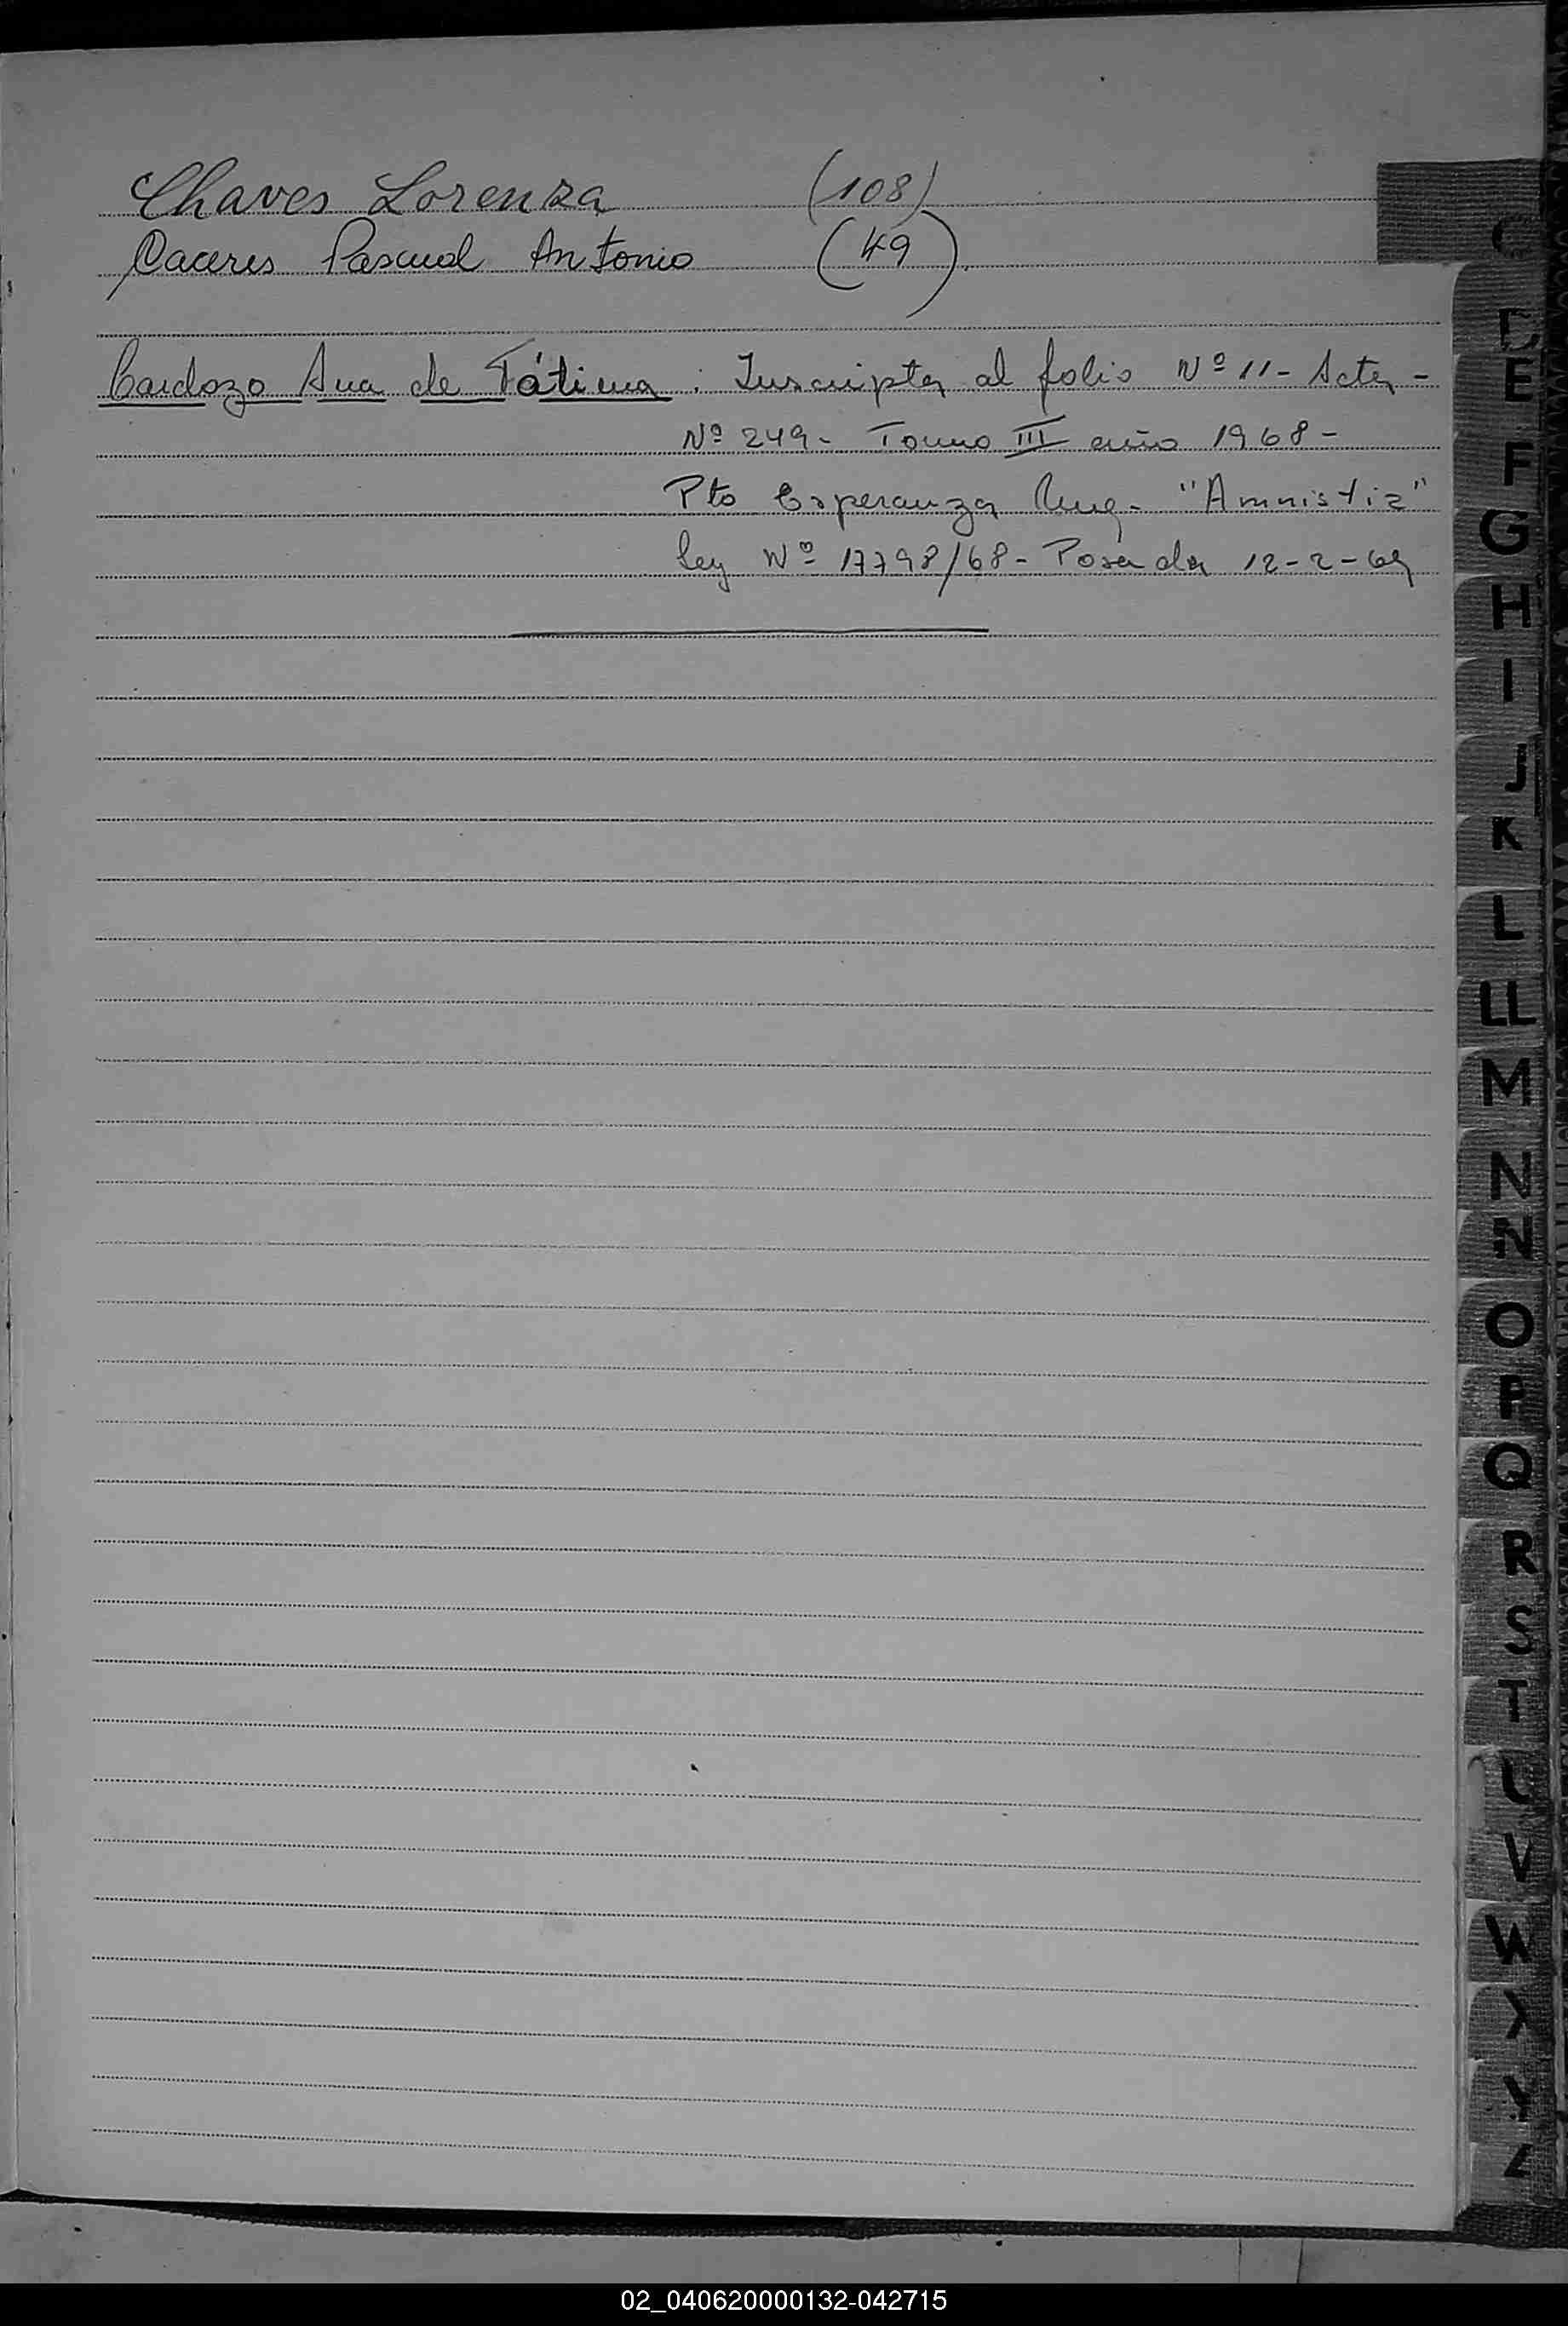 Chaves Lorenza (108)
Caceres Pascual Antonio (49)
Cardozo Ana de Fátima : Inscripta al folio Nº 11 - Acta -
Nº 249 - Tomo III año 1968 -
Pto Esperanza "Amnistia"
Ley Nº 17798/68 - Posada 12-2-69
C
D
E
F
G
H
I
J
K
L
LL
M
N
N
O
P
Q
R
S
T
U
V
W
X
Y
Z
02_040620000132-042715